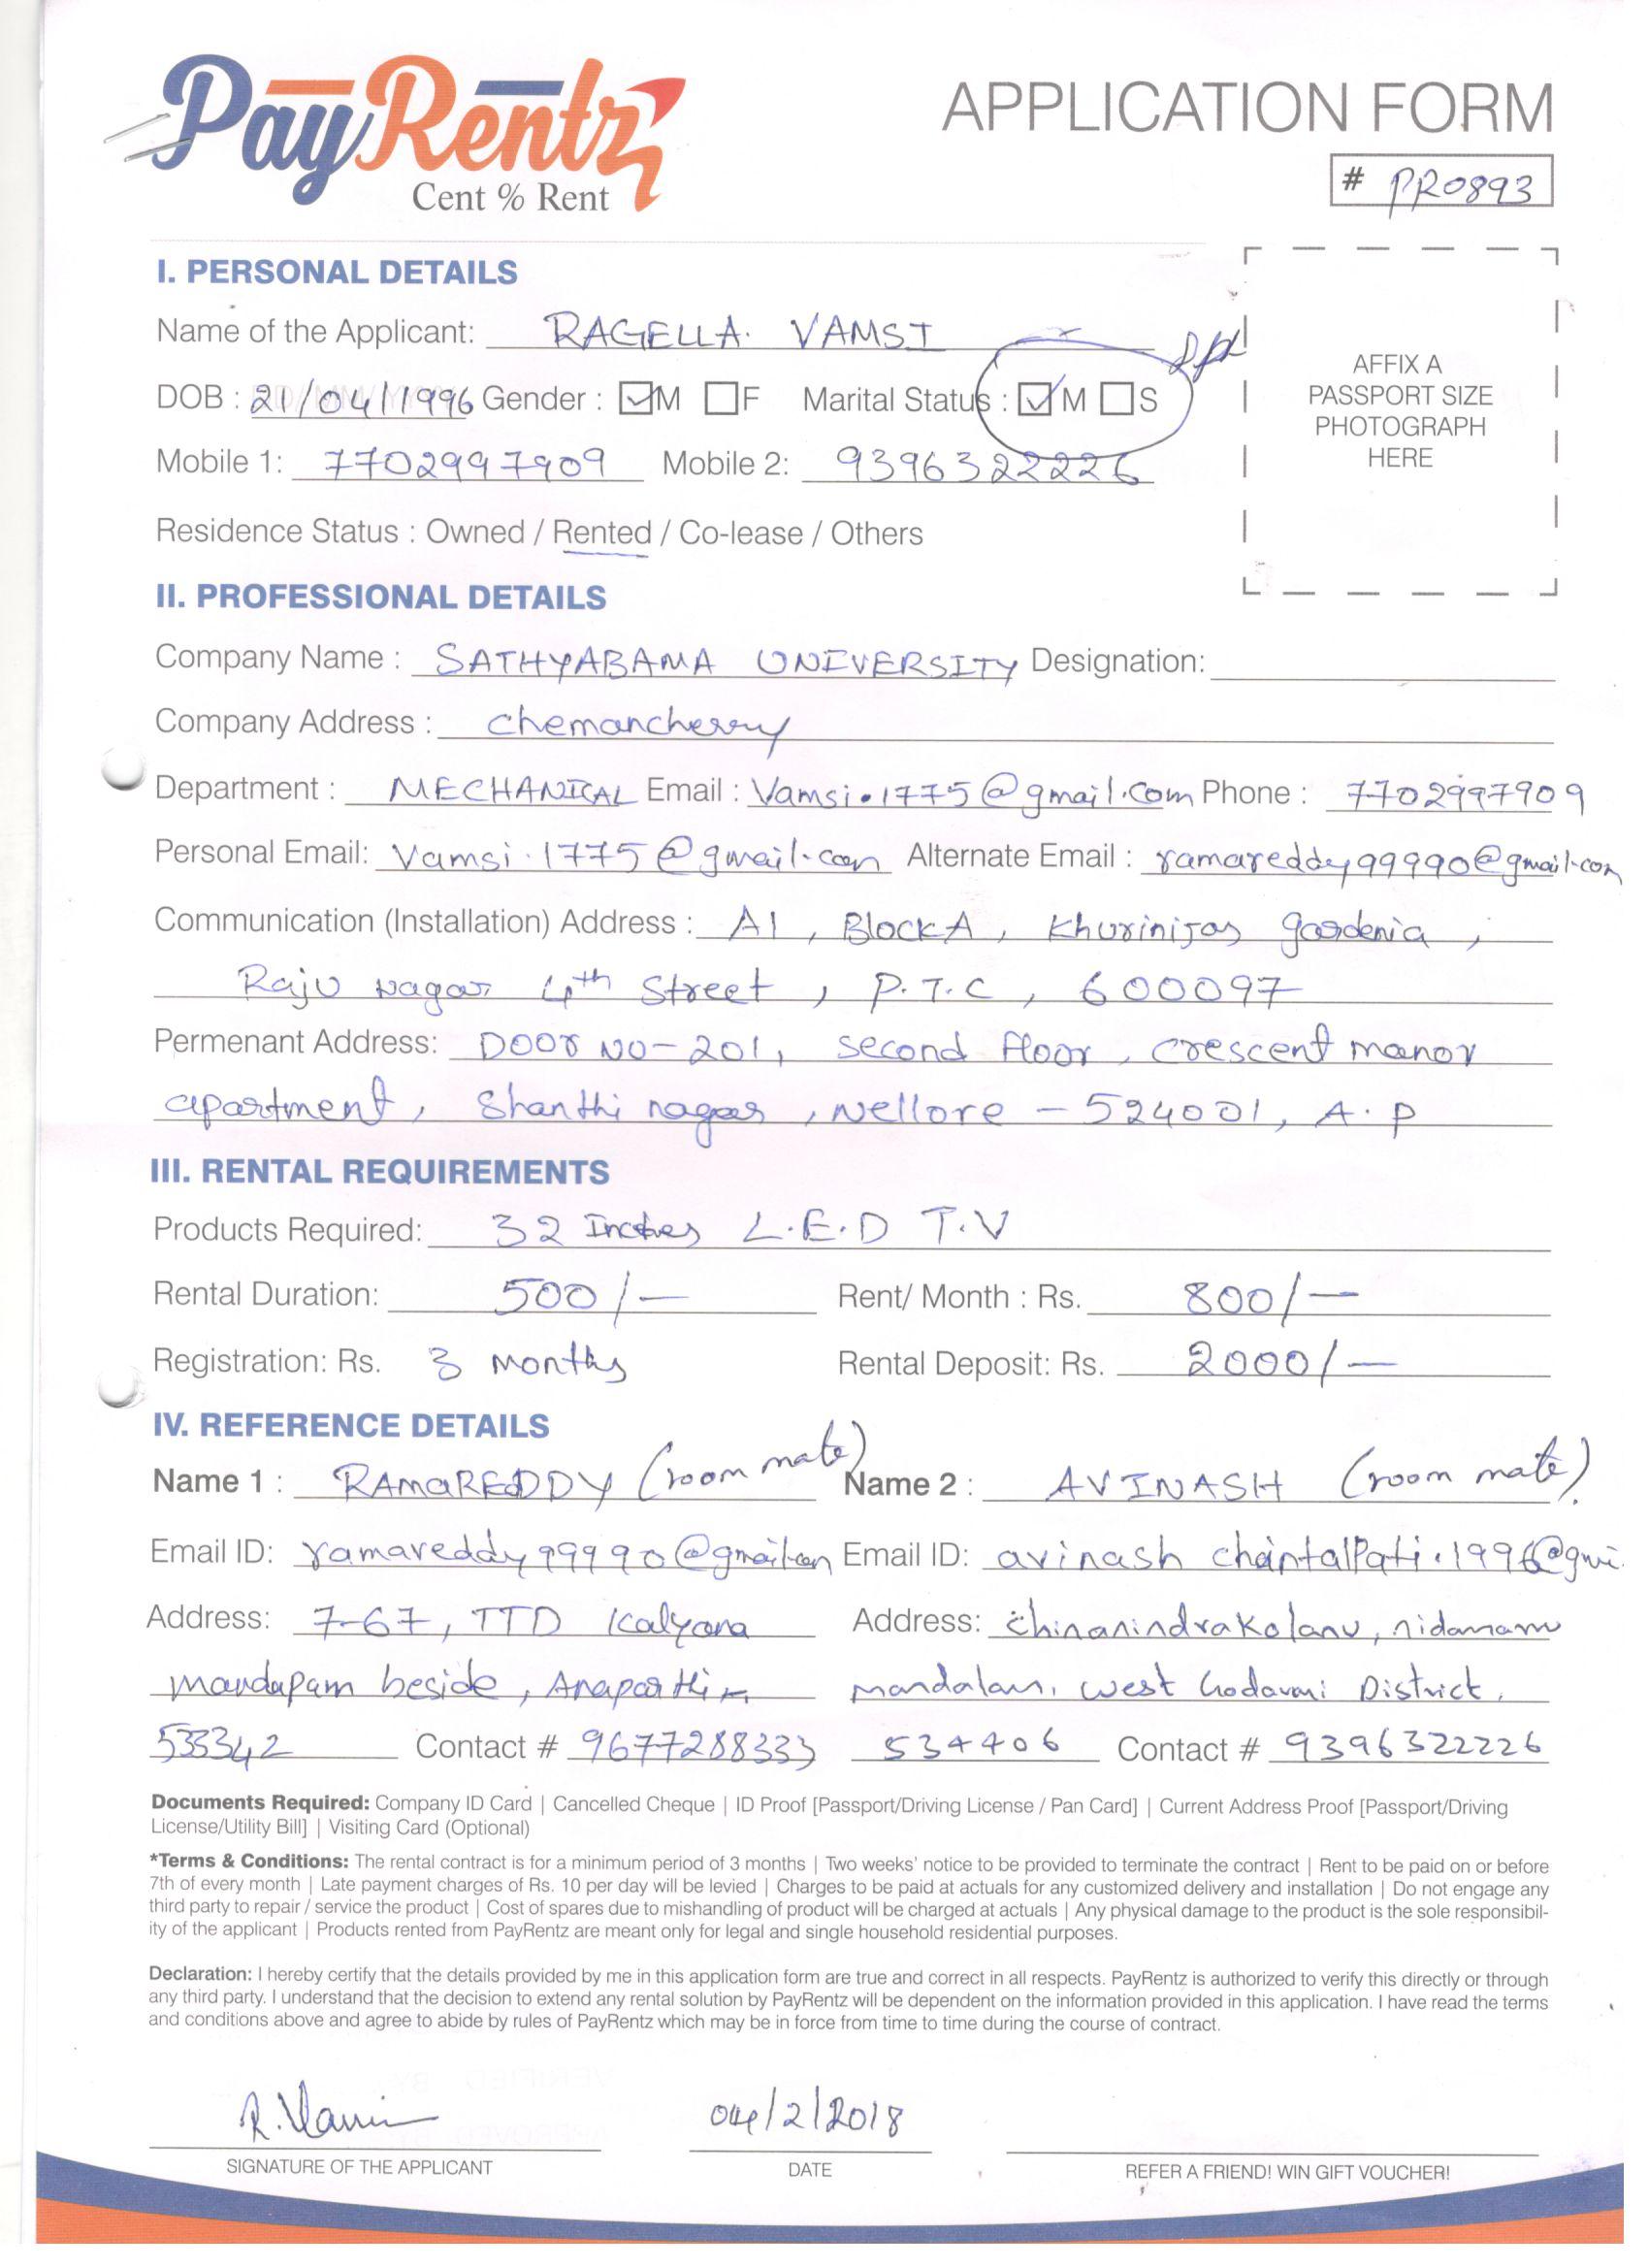 PayRentz
Cent % Rent
APPLICATION FORM
# PR0893
I. PERSONAL DETAILS
Name of the Applicant: RAGELLA. VAMSI
DOB : 21/04/1996 Gender : M F Marital Status : M S
Mobile 1: 7702997909 Mobile 2: 9396322226
AFFIX A
PASSPORT SIZE
PHOTOGRAPH
HERE
Residence Status : Owned / Rented / Co-lease / Others
II. PROFESSIONAL DETAILS
Company Name : SATHYABAMA UNIVERSITY Designation:
Company Address : Chemancherry
Department : MECHANICAL Email : Vamsi.1775@gmail.com Phone : 7702997909
Personal Email: Vamsi.1775@gmail.com Alternate Email : ramareddy99990@gmail.com
Communication (Installation) Address : A1, Block A, gardenia,
Raju nagar 4th Street, P.T.C, 600097
Permenant Address: Door NO-201, second floor, crescent manor
apartment, Shanthi nagar, Nellore - 524001, A.P
III. RENTAL REQUIREMENTS
Products Required: 32 Inches L.E.D T.V
Rental Duration: 500/- Rent/ Month : Rs. 800/-
Registration: Rs. 3 months Rental Deposit: Rs. 2000/-
IV. REFERENCE DETAILS
Name 1 : RAMAREDDY (room mate) Name 2 : AVINASH (room mate).
Email ID: ramareddy99990@gmail.com Email ID: avinash chantalPati.1996@gmi
Address: 7-67, TTD Kalyana Address: chinanindrakolanu, nidamaru
mandapam beside, Anaparthi mandalam, West Godavari District,
533342 Contact # 9677288333 534406 Contact # 9396322226
Documents Required: Company ID Card | Cancelled Cheque | ID Proof [Passport/Driving License / Pan Card] | Current Address Proof [Passport/Driving
License/Utility Bill] | Visiting Card (Optional)
*Terms & Conditions: The rental contract is for a minimum period of 3 months | Two weeks' notice to be provided to terminate the contract | Rent to be paid on or before
7th of every month | Late payment charges of Rs. 10 per day will be levied | Charges to be paid at actuals for any customized delivery and installation | Do not engage any
third party to repair / service the product | Cost of spares due to mishandling of product will be charged at actuals | Any physical damage to the product is the sole responsibil-
ity of the applicant | Products rented from PayRentz are meant only for legal and single household residential purposes.
Declaration: I hereby certify that the details provided by me in this application form are true and correct in all respects. PayRentz is authorized to verify this directly or through
any third party. I understand that the decision to extend any rental solution by PayRentz will be dependent on the information provided in this application. I have read the terms
and conditions above and agree to abide by rules of PayRentz which may be in force from time to time during the course of contract.
R. Vamsi
04/2/2018
SIGNATURE OF THE APPLICANT DATE REFER A FRIEND! WIN GIFT VOUCHER!